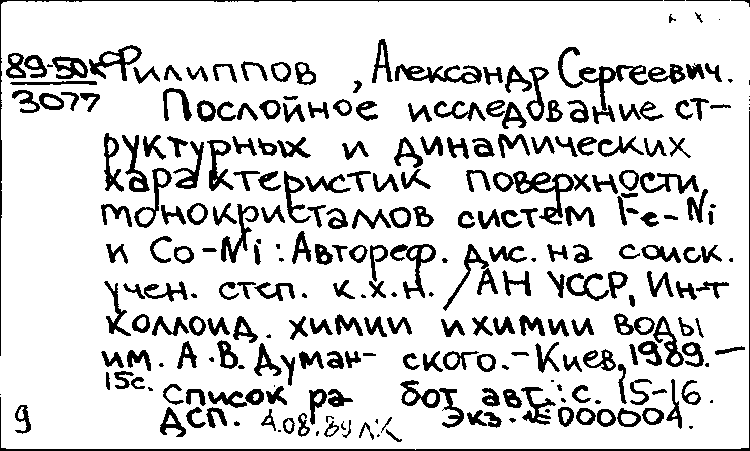 89-50к Филиппов, Александр Сергеевич.
3077 Послойное исследование ст-
руктурных и динамических
характеристик поверхности
монокристаллов систем Fe-Ni
и Co-Ni: Автореф. дис. на соиск.
учен. степ. к.х.н. / АН УССР, Ин-т
коллоид. химии и химии воды
им. А.В. Думанского.-Киев, 1989.-
15с. Список работ авт.: с. 15-16.
9 ДСП. 4.08.89 Экз. №000004.